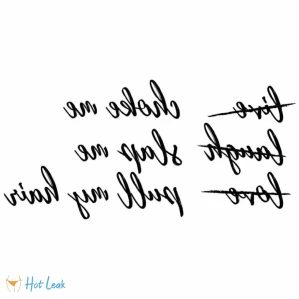 live choke me
laugh slap me
love pull my hair
Hot Leak